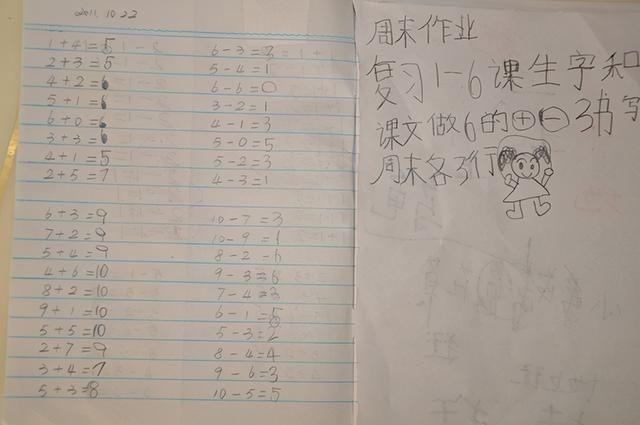 2011.10.22
1+4=5
2+3=5
4+2=6
5+1=6
6+0=6
3+3=6
4+1=5
2+5=7
6+3=9
7+2=9
5+4=9
4+6=10
8+2=10
9+1=10
5+5=10
2+7=9
3+4=7
5+3=8
6-3=3
5-4=1
6-6=0
3-2=1
4-1=3
5-0=5
5-2=3
4-3=1
10-7=3
10-9=1
8-2=6
9-3=6
7-4=3
6-1=5
5-3=2
8-4=4
9-6=3
10-5=5
周末作业
复习1-6课生字和
课文做6的⊕⊖3书写
周末各3行